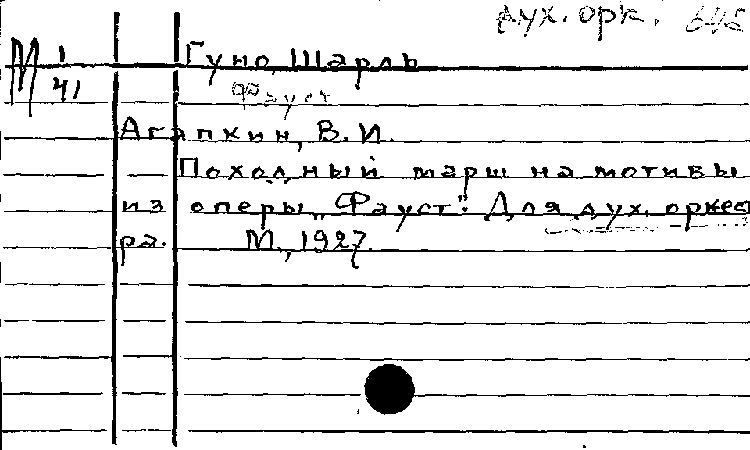 дух. орк.
М 1 Гуно, Шарль
41 Фауст
Агапкин, В. И.
Походный марш на мотивы
из оперы „Фауст". Для дух. оркест
ра. М., 1927.